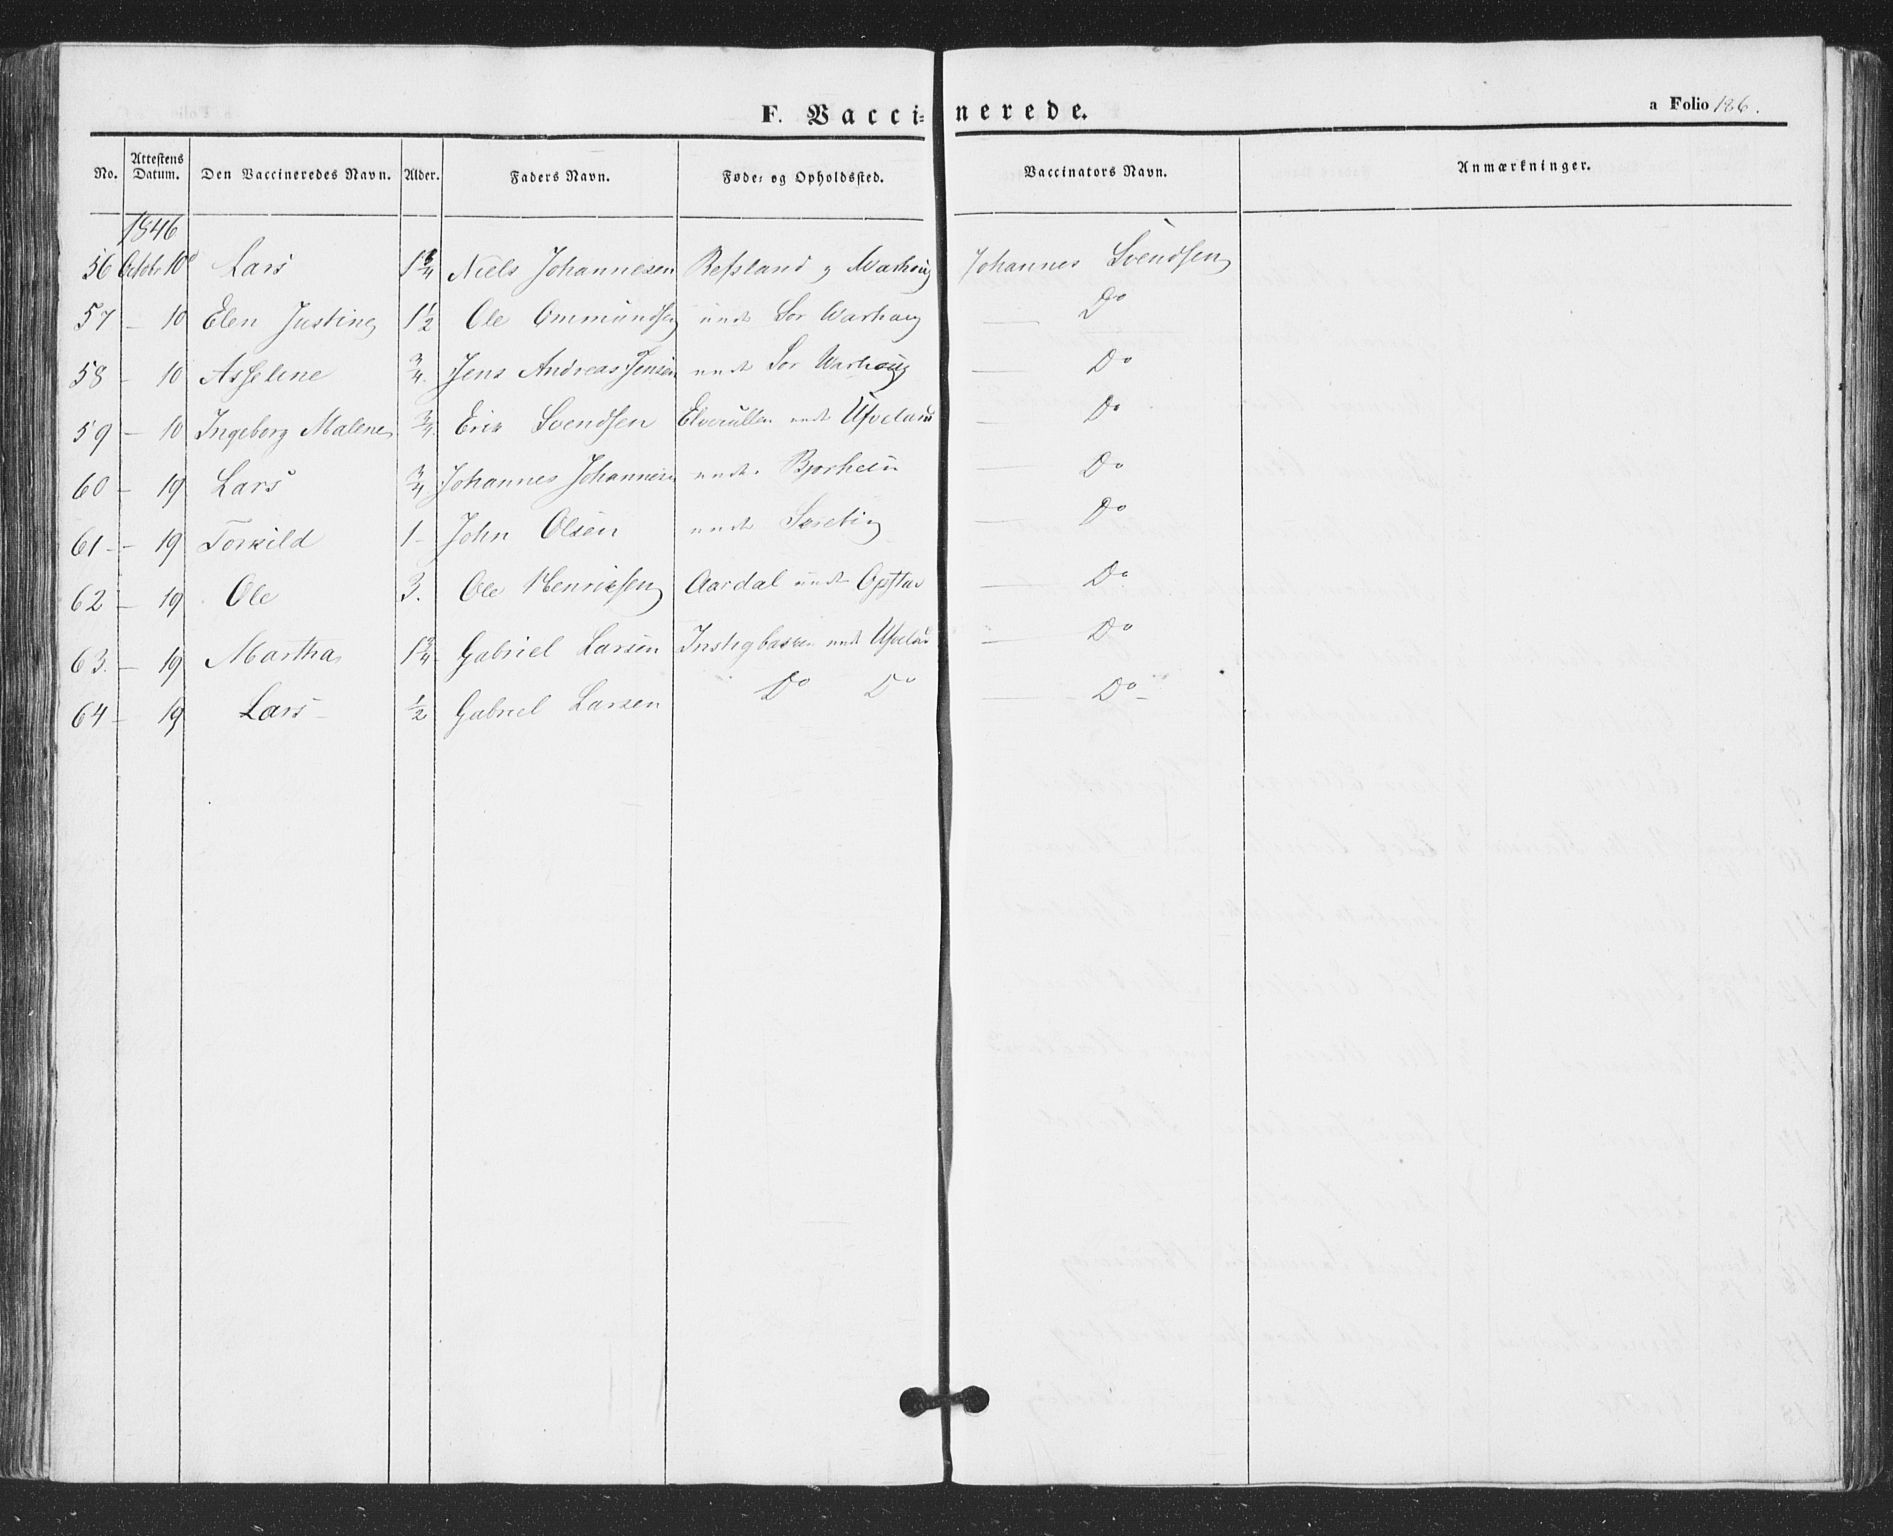 F. Vaccinerede.
a Folio 186.
No. Attestens Datum. Den Vaccineredes Navn. Alder. Faders Navn. Føde- og Opholdssted. Vaccinators Navn. Anmærkninger.
1846
56 Octobr 10d Lars 1 3/4 Niels Johannesen Refsland Johannes Svendsen
57 - 10 Elen Justine 1 1/2 Ole Ommundsen und Sør Warhaug Do
58 - 10 Asseline 3/4. Jens Andreas Jensen und Sør Warhaug Do
59 - 10 Ingeborg Malene 3/4. Erik Svendsen und Ufvelan Do
60 - 19 Lars 3/4 Johannes Johannesen und Bjorheim Do
61 - 19 Torkild 1 - John Olsen und Do
62 - 19 Ole 3. Ole Henriksen Aardal und Opstad Do
63. - 19 Martha 1 3/4 Gabriel Larsen und Ufvelan Do
64 - 19 Lars 1/2 Gabriel Larsen Do Do Do